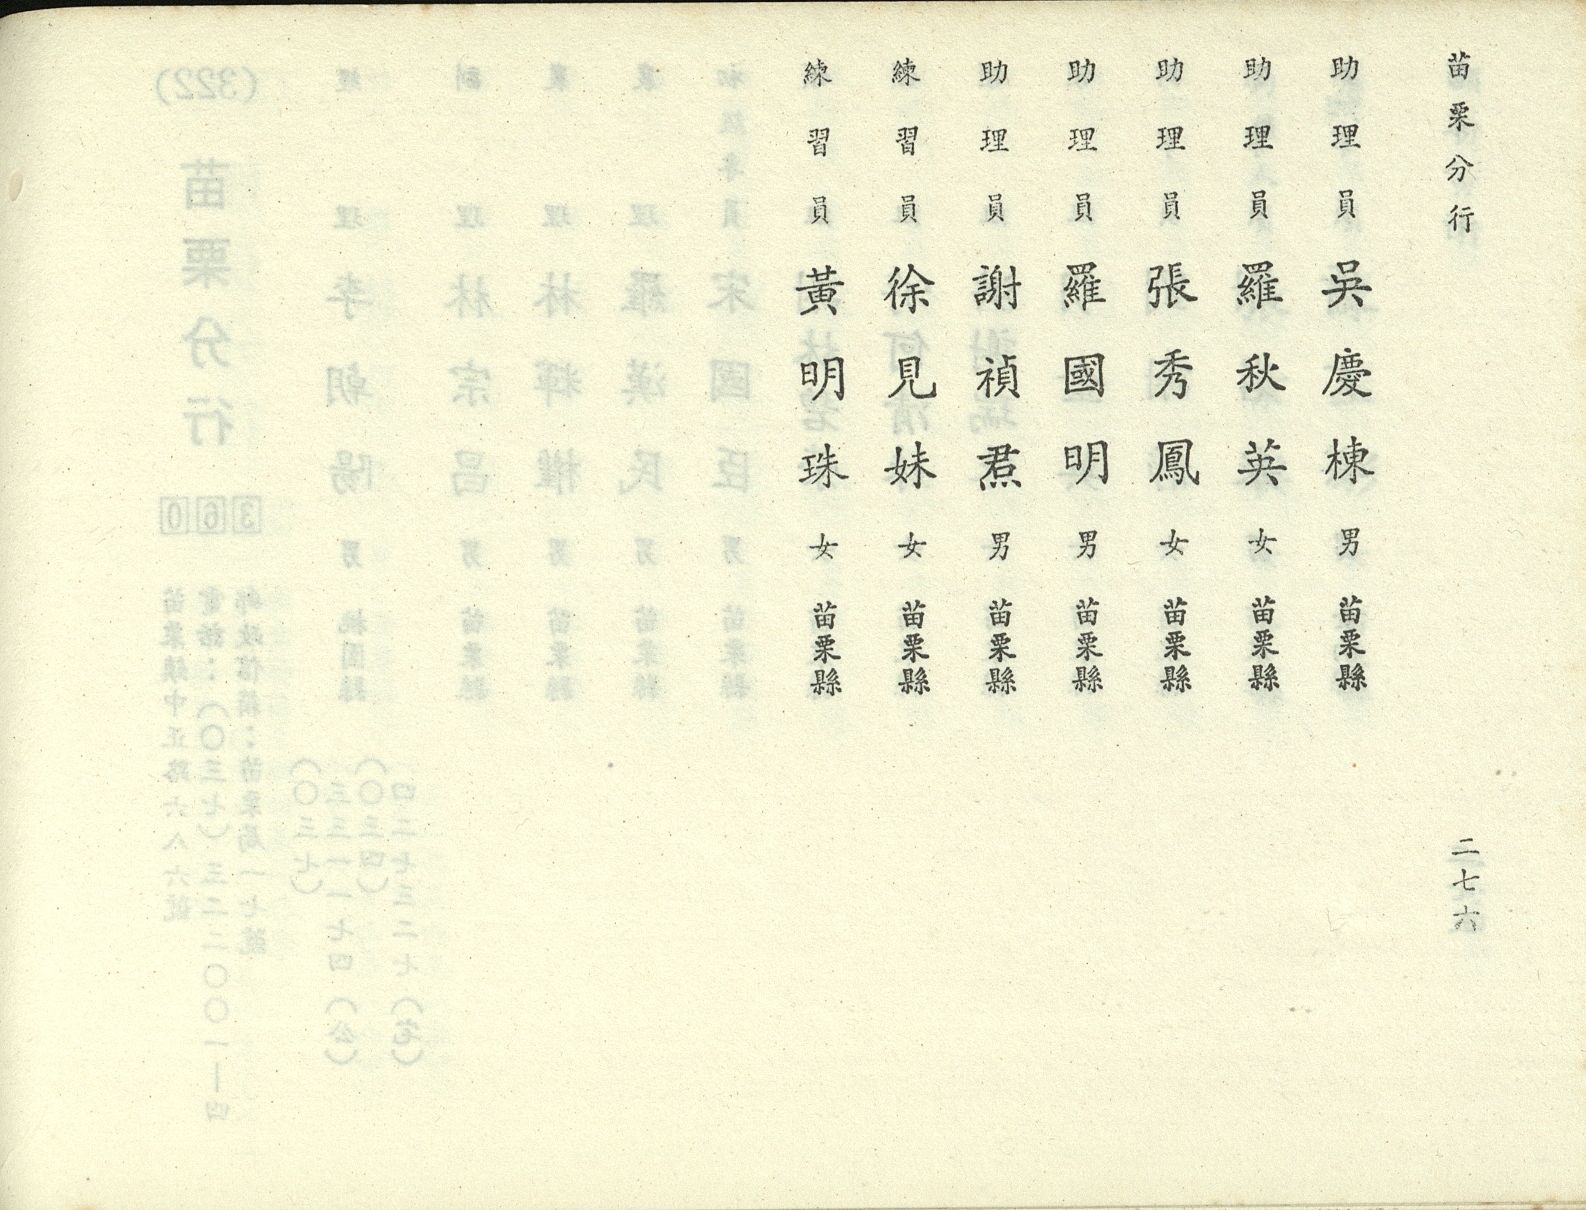 苗栗分行
二七六
助理員 吳慶棟 男 苗栗縣
助理員 羅秋英 女 苗栗縣
助理員 張秀鳳 女 苗栗縣
助理員 羅國明 男 苗栗縣
助理員 謝禎焄 男 苗栗縣
練習員 徐見妹 女 苗栗縣
練習員 黃明珠 女 苗栗縣